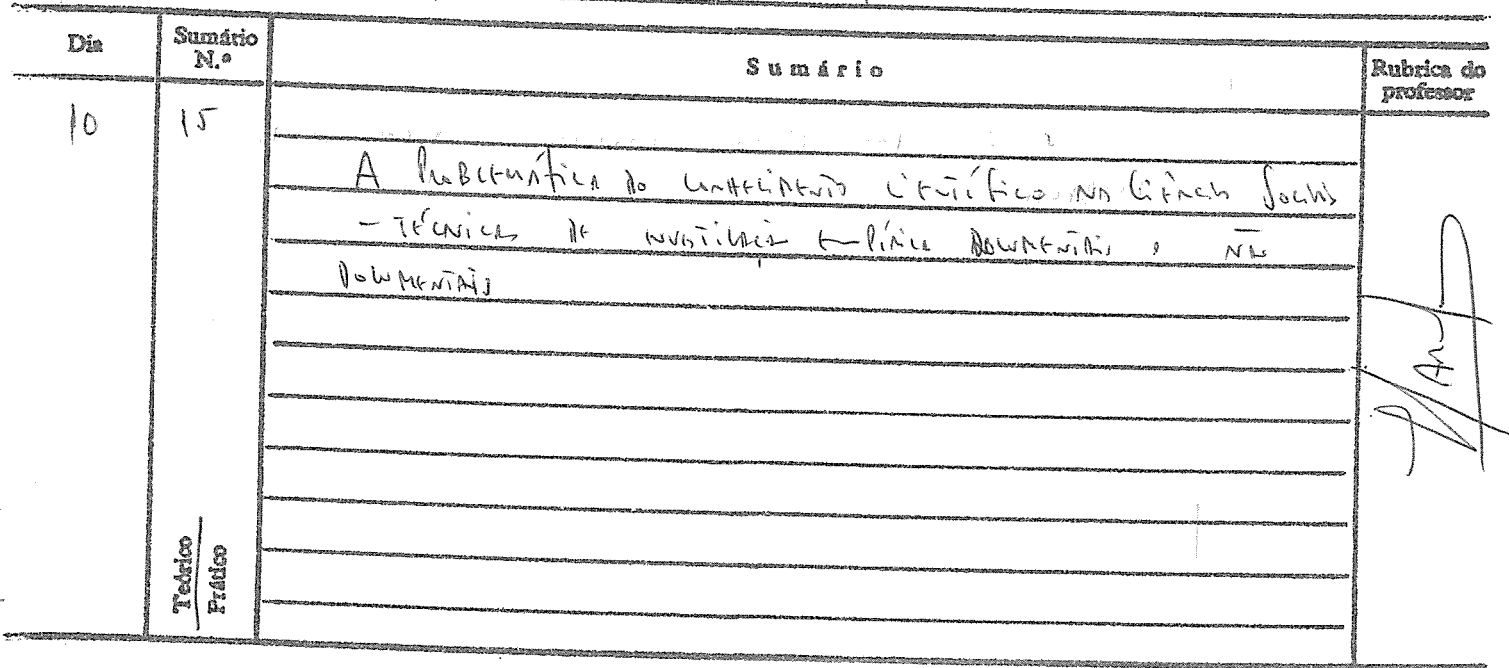 Dia
Sumário
N.º
Sumário
Rubrica do
professor
10
15
A Problemática do conhecimento científico na Ciências Sociais
- Técnicas de investigação empírica documentais e não
documentais
Teórico
Prático